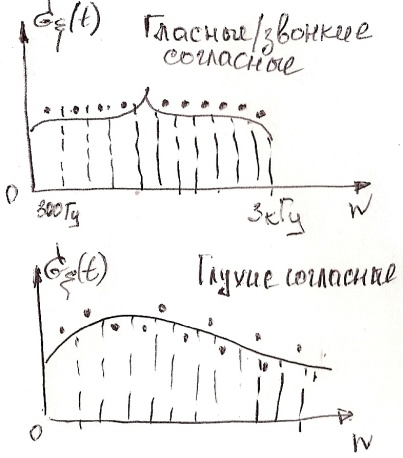 σξ(t)
Гласные/звонкие
согласные
0
300Гц
3кГц
W
σξ(t)
Глухие согласные
0
W